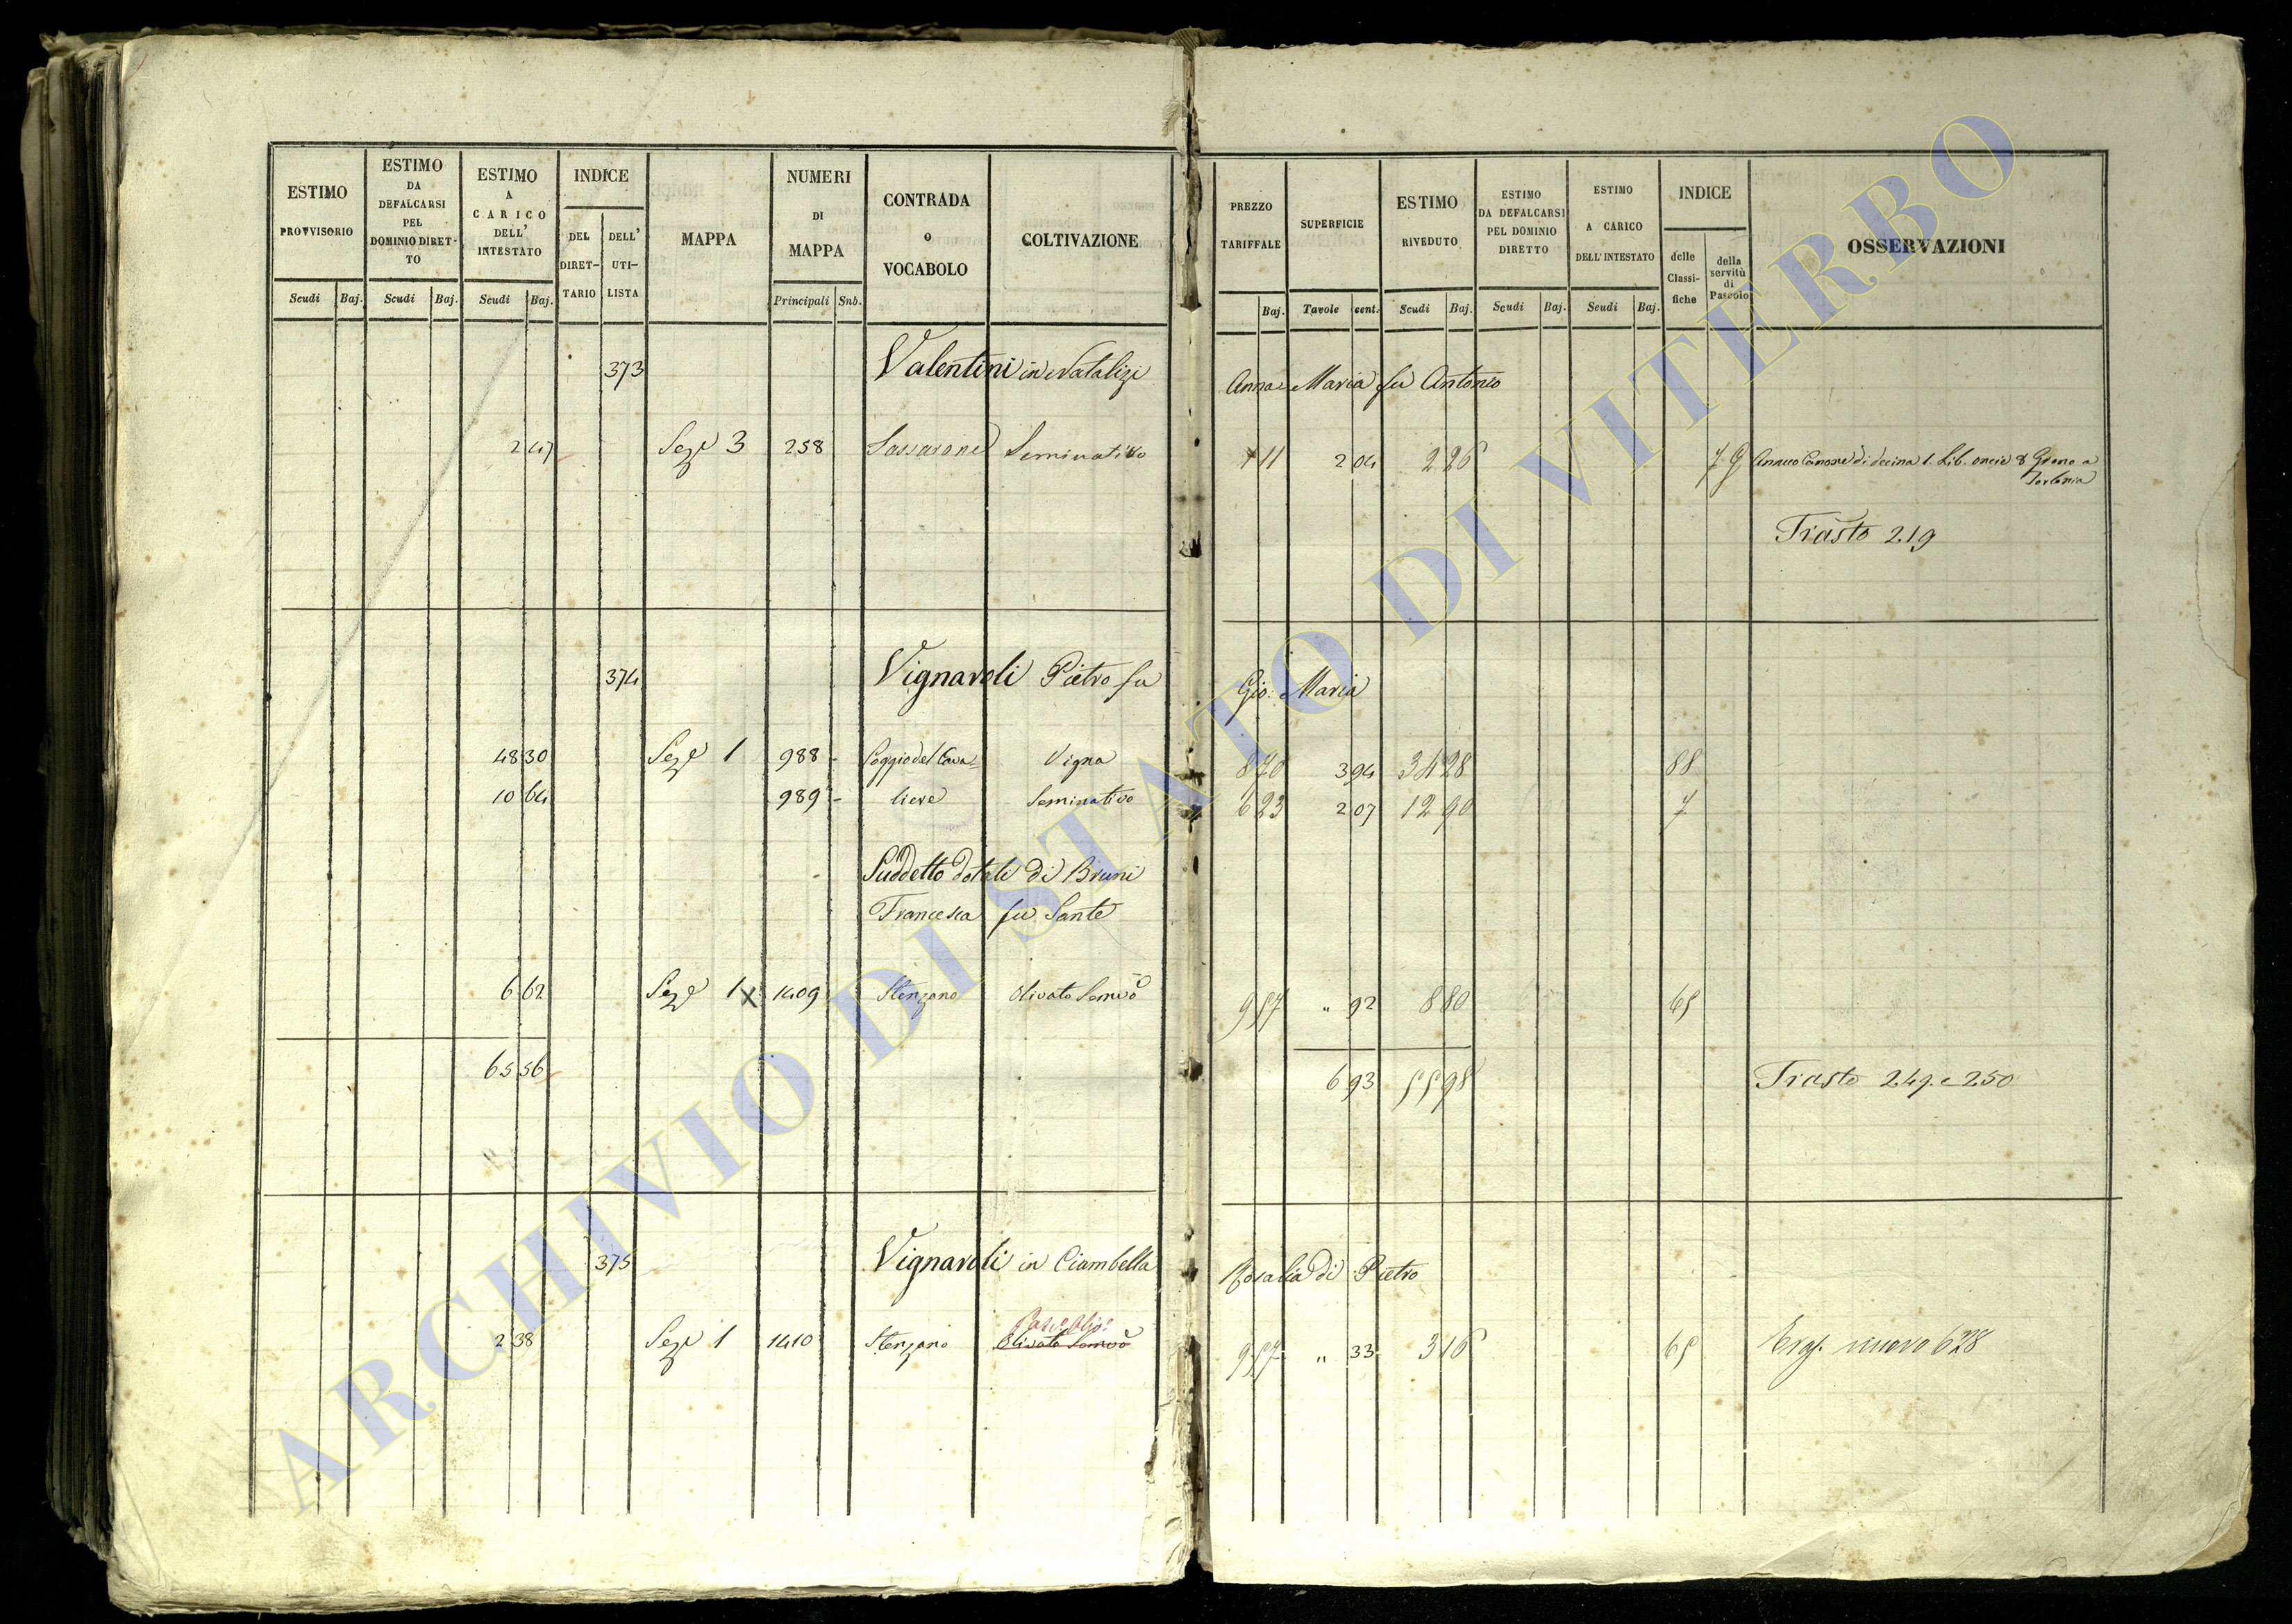 ESTIMO PROVVISORIO
ESTIMO DA DEFALCARSI PEL DOMINIO DIRET- TO
ESTIMO A CARICO DELL' INTESTATO
INDICE
DEL DIRET- TARIO
DELL' UTI- LISTA
MAPPA
NUMERI DI MAPPA
CONTRADA o VOCABOLO
COLTIVAZIONE
Scudi Baj. Scudi Baj. Scudi Baj. Principali Sub.
PREZZO TARIFFALE
SUPERFICIE
ESTIMO RIVEDUTO
ESTIMO DA DEFALCARSI PEL DOMINIO DIRETTO
ESTIMO A CARICO DELL' INTESTATO
INDICE
delle Classi- fiche
della servitù di Pascolo
OSSERVAZIONI
Baj. Tavole cent. Scudi Baj. Scudi Baj. Scudi Baj.
373 Valentini in Natalizi Anna Maria fu Antonio
2 47 Seze 3 258 Sassarone Seminativo 11 2 04 2 26 7 G Annuo Canone di decina 1. Lib. oncie 8 Grano a
Torlonia
Trasto 219
374 Vignaroli Pietro fu Gio: Maria
48 30 Seze 1 988 - Poggio del Cava= Vigna 8 70 3 94 34 28 88
10 64 989 - liere Seminativo 6 23 2 07 12 90 7
Suddetto dotale di Bruni
Francesca fu Sante
6 62 Seze 1 X 1409 Stenzano Olivato Semvo 9 57 " 92 8 80 65
65 56 6 93 55 98 Trasto 249. e 250
375 Vignaroli in Ciambella Rosalia di Pietro
Pasc. Olio.
2 38 Seze 1 1410 Stenzano Olivato Semvo 9 57 " 33 3 16 65 nuovo 628
ARCHIVIO DI STATO DI VITERBO